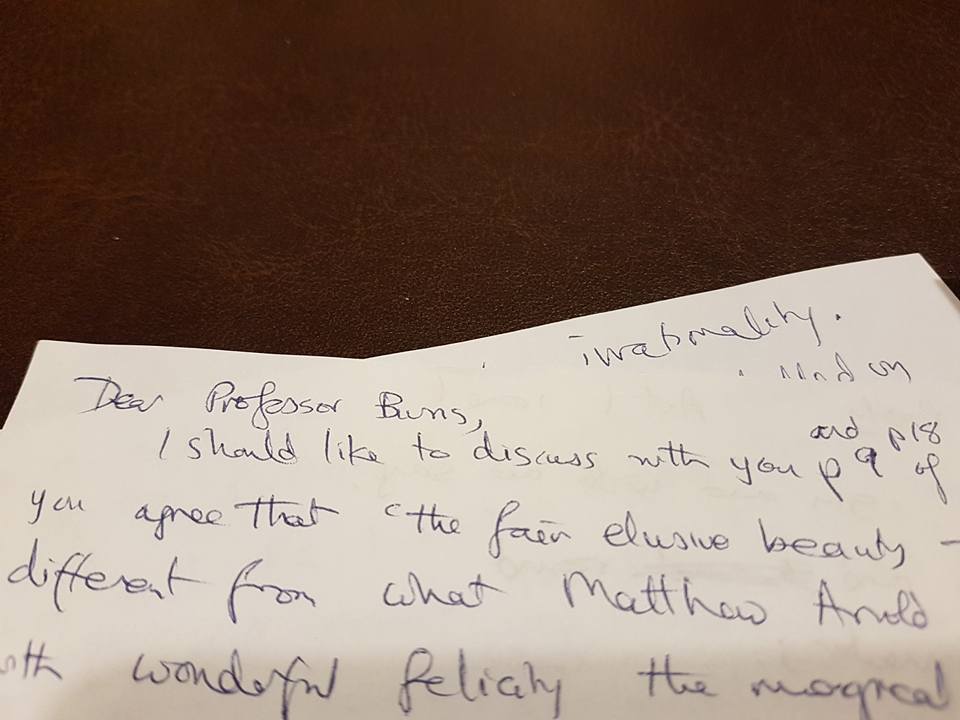 irrationality.
Dear Professor Burns,
and p18
I should like to discuss with you p 9 of
you agree that "the fair elusive beauty -
different from what Matthew Arnold
wonderful felicity the magical